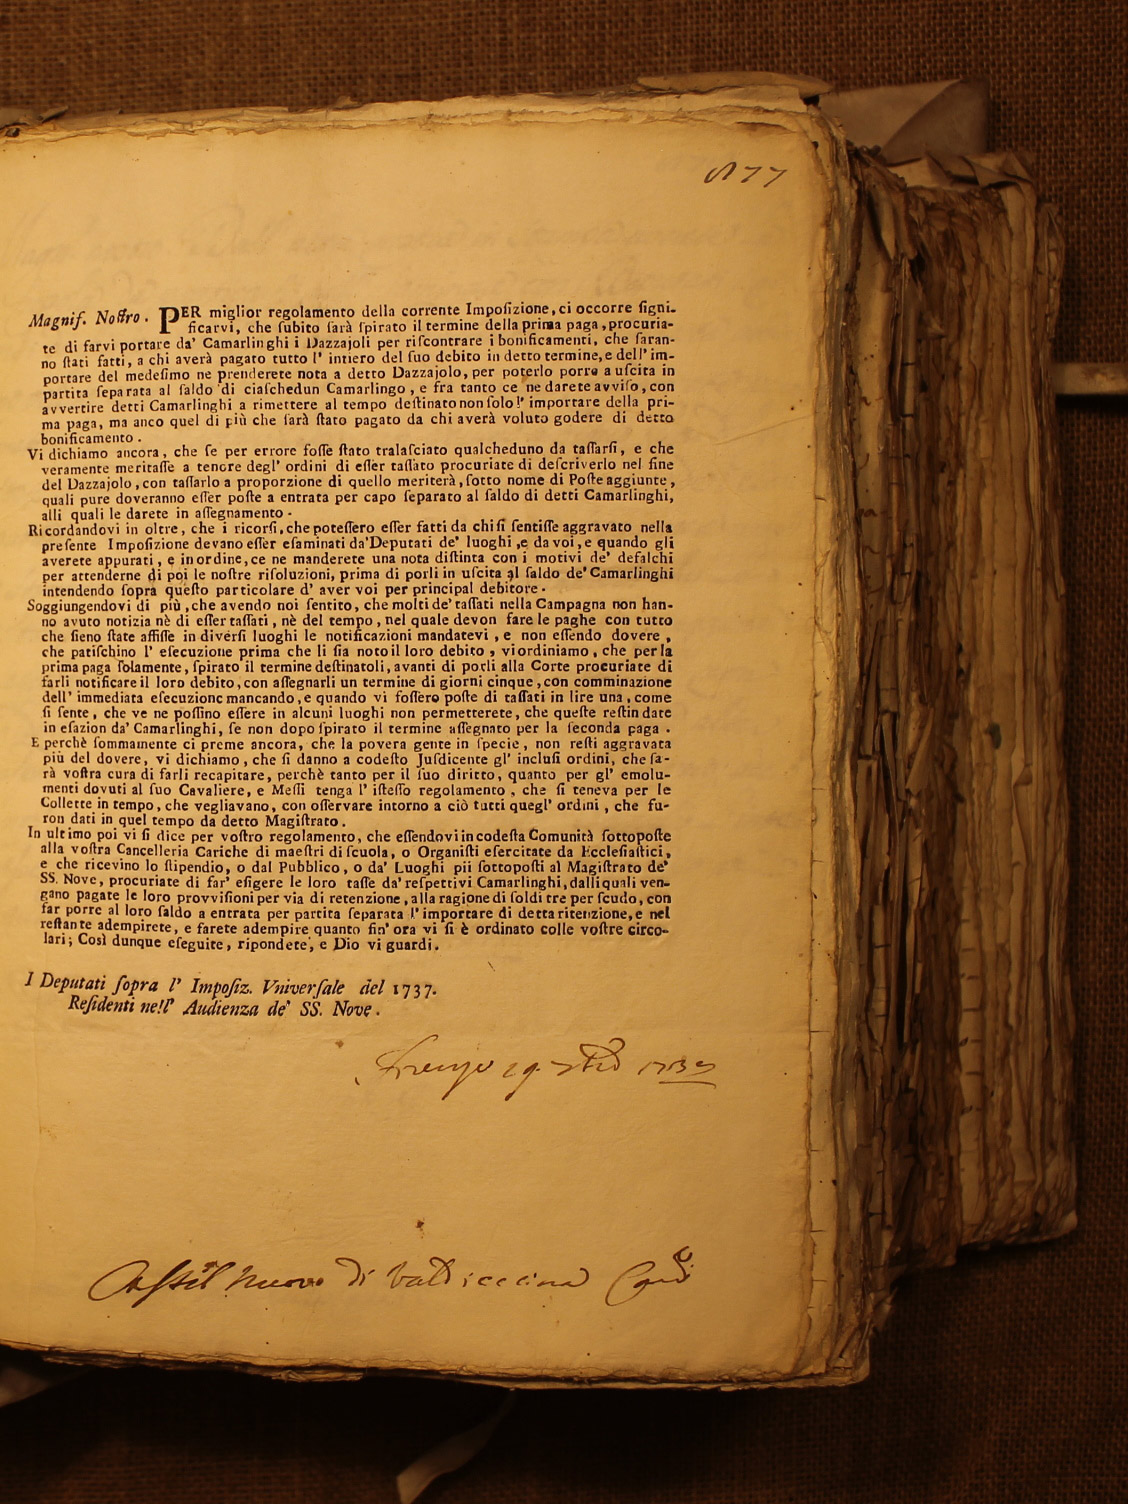 877
Magnif. Noſtro. PER miglior regolamento della corrente Impoſizione, ci occorre ſigni-
ficarvi, che ſubito ſarà ſpirato il termine della prima paga, procuria-
te di farvi portare da' Camarlinghi i Dazzajoli per riſcontrare i bonificamenti, che ſaran-
no ſtati fatti, a chi averà pagato tutto l' intiero del ſuo debito in detto termine, e dell' im-
portare del medeſimo ne prenderete nota a detto Dazzajolo, per poterlo porre a uſcita in
partita ſeparata al ſaldo di ciaſchedun Camarlingo, e fra tanto ce ne darete avviſo, con
avvertire detti Camarlinghi a rimettere al tempo deſtinato non ſolo l' importare della pri-
ma paga, ma anco quel di più che ſarà ſtato pagato da chi averà voluto godere di detto
bonificamento.
Vi dichiamo ancora, che ſe per errore foſſe ſtato tralaſciato qualcheduno da taſſarſi, e che
veramente meritaſſe a tenore degl' ordini di eſſer taſſato procuriate di deſcriverlo nel fine
del Dazzajolo, con taſſarlo a proporzione di quello meriterà, ſotto nome di Poſte aggiunte,
quali pure doveranno eſſer poſte a entrata per capo ſeparato al ſaldo di detti Camarlinghi,
alli quali le darete in aſſegnamento.
Ricordandovi in oltre, che i ricorſi, che poteſſero eſſer fatti da chi ſi ſentiſſe aggravato nella
preſente Impoſizione devano eſſer eſaminati da' Deputati de' luoghi, e da voi, e quando gli
averete appurati, e in ordine, ce ne manderete una nota diſtinta con i motivi de' defalchi
per attenderne di poi le noſtre riſoluzioni, prima di porli in uſcita al ſaldo de' Camarlinghi
intendendo ſopra queſto particolare d' aver voi per principal debitore.
Soggiungendovi di più, che avendo noi ſentito, che molti de' taſſati nella Campagna non han-
no avuto notizia nè di eſſer taſſati, nè del tempo, nel quale devon fare le paghe con tutto
che ſieno ſtate affiſſe in diverſi luoghi le notificazioni mandatevi, e non eſſendo dovere,
che patiſchino l' eſecuzione prima che li ſia noto il loro debito, vi ordiniamo, che per la
prima paga ſolamente, ſpirato il termine deſtinatoli, avanti di porli alla Corte procuriate di
farli notificare il loro debito, con aſſegnarli un termine di giorni cinque, con comminazione
dell' immediata eſecuzione mancando, e quando vi foſſero poſte di taſſati in lire una, come
ſi ſente, che ve ne poſſino eſſere in alcuni luoghi non permetterete, che queſte reſtin date
in eſazion da' Camarlinghi, ſe non dopo ſpirato il termine aſſegnato per la ſeconda paga.
E perchè ſommamente ci preme ancora, che la povera gente in ſpecie, non reſti aggravata
più del dovere, vi dichiamo, che ſi danno a codeſto Juſdicente gl' incluſi ordini, che ſa-
rà voſtra cura di farli recapitare, perchè tanto per il ſuo diritto, quanto per gl' emolu-
menti dovuti al ſuo Cavaliere, e Meſſi tenga l' iſteſſo regolamento, che ſi teneva per le
Collette in tempo, che vegliavano, con oſſervare intorno a ciò tutti quegl' ordini, che fu-
ron dati in quel tempo da detto Magiſtrato.
In ultimo poi vi ſi dice per voſtro regolamento, che eſſendovi in codeſta Comunità ſottopoſte
alla voſtra Cancelleria Cariche di maeſtri di ſcuola, o Organiſti eſercitate da Eccleſiaſtici,
e che ricevino lo ſtipendio, o dal Pubblico, o da' Luoghi pii ſottopoſti al Magiſtrato de'
SS. Nove, procuriate di far' eſigere le loro taſſe da' reſpettivi Camarlinghi, dalli quali ven-
gano pagate le loro provviſioni per via di retenzione, alla ragione di ſoldi tre per ſcudo, con
far porre al loro ſaldo a entrata per partita ſeparata l' importare di detta ritenzione, e nel
reſtante adempirete, e farete adempire quanto fin' ora vi ſi è ordinato colle voſtre circo-
lari; Così dunque eſeguite, ripondete, e Dio vi guardi.
I Deputati ſopra l' Impoſiz. Vniverſale del 1737.
Reſidenti nell' Audienza de' SS. Nove.
Firenze 19
Castel Nuovo di Valdicecina